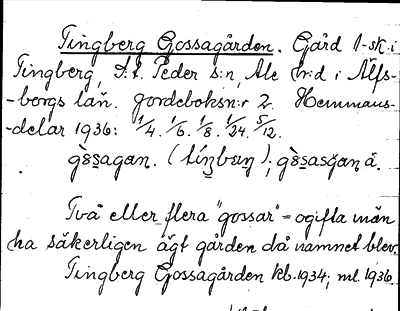 Tingberg Gossagården. Gård 1-sk i
Tingberg, S:t Peder s:n, Ale h:d i Älfs-
-borgs län. Jordeboksn:r 2. Hemmans-
-delar 1936: 1/4. 1/6. 1/8. 1/24. 5/12.
Två eller flera "gossar" = ogifta män
ha säkerligen ägt gården då namnet blev.
Tingberg Gossagården kb. 1934; ml. 1936.